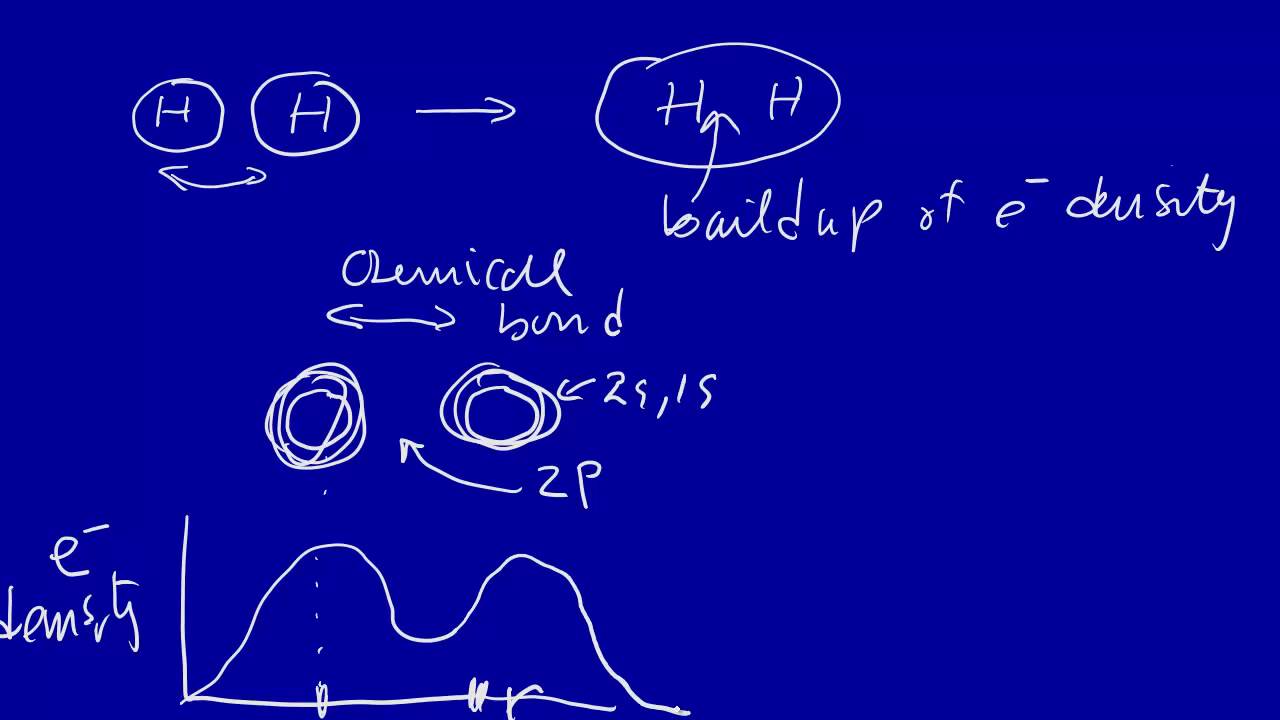 H H → H H
buildup of e⁻ density
Chemical
bond
2s, 1s
2P
e⁻
density